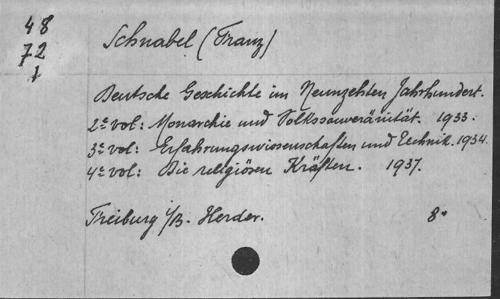 48
72
1
Schnabel (Franz)
Deutsche Geschichte im Neunzehten Jahrhundert.
2e vol: Monarchie und Volkssouveränität. 1933.
3e vol: Erfahrungswissenschaften und Technik. 1934.
4e vol: Die religiösen Kräften. 1937.
Freiburg i/B. Herder. 8°